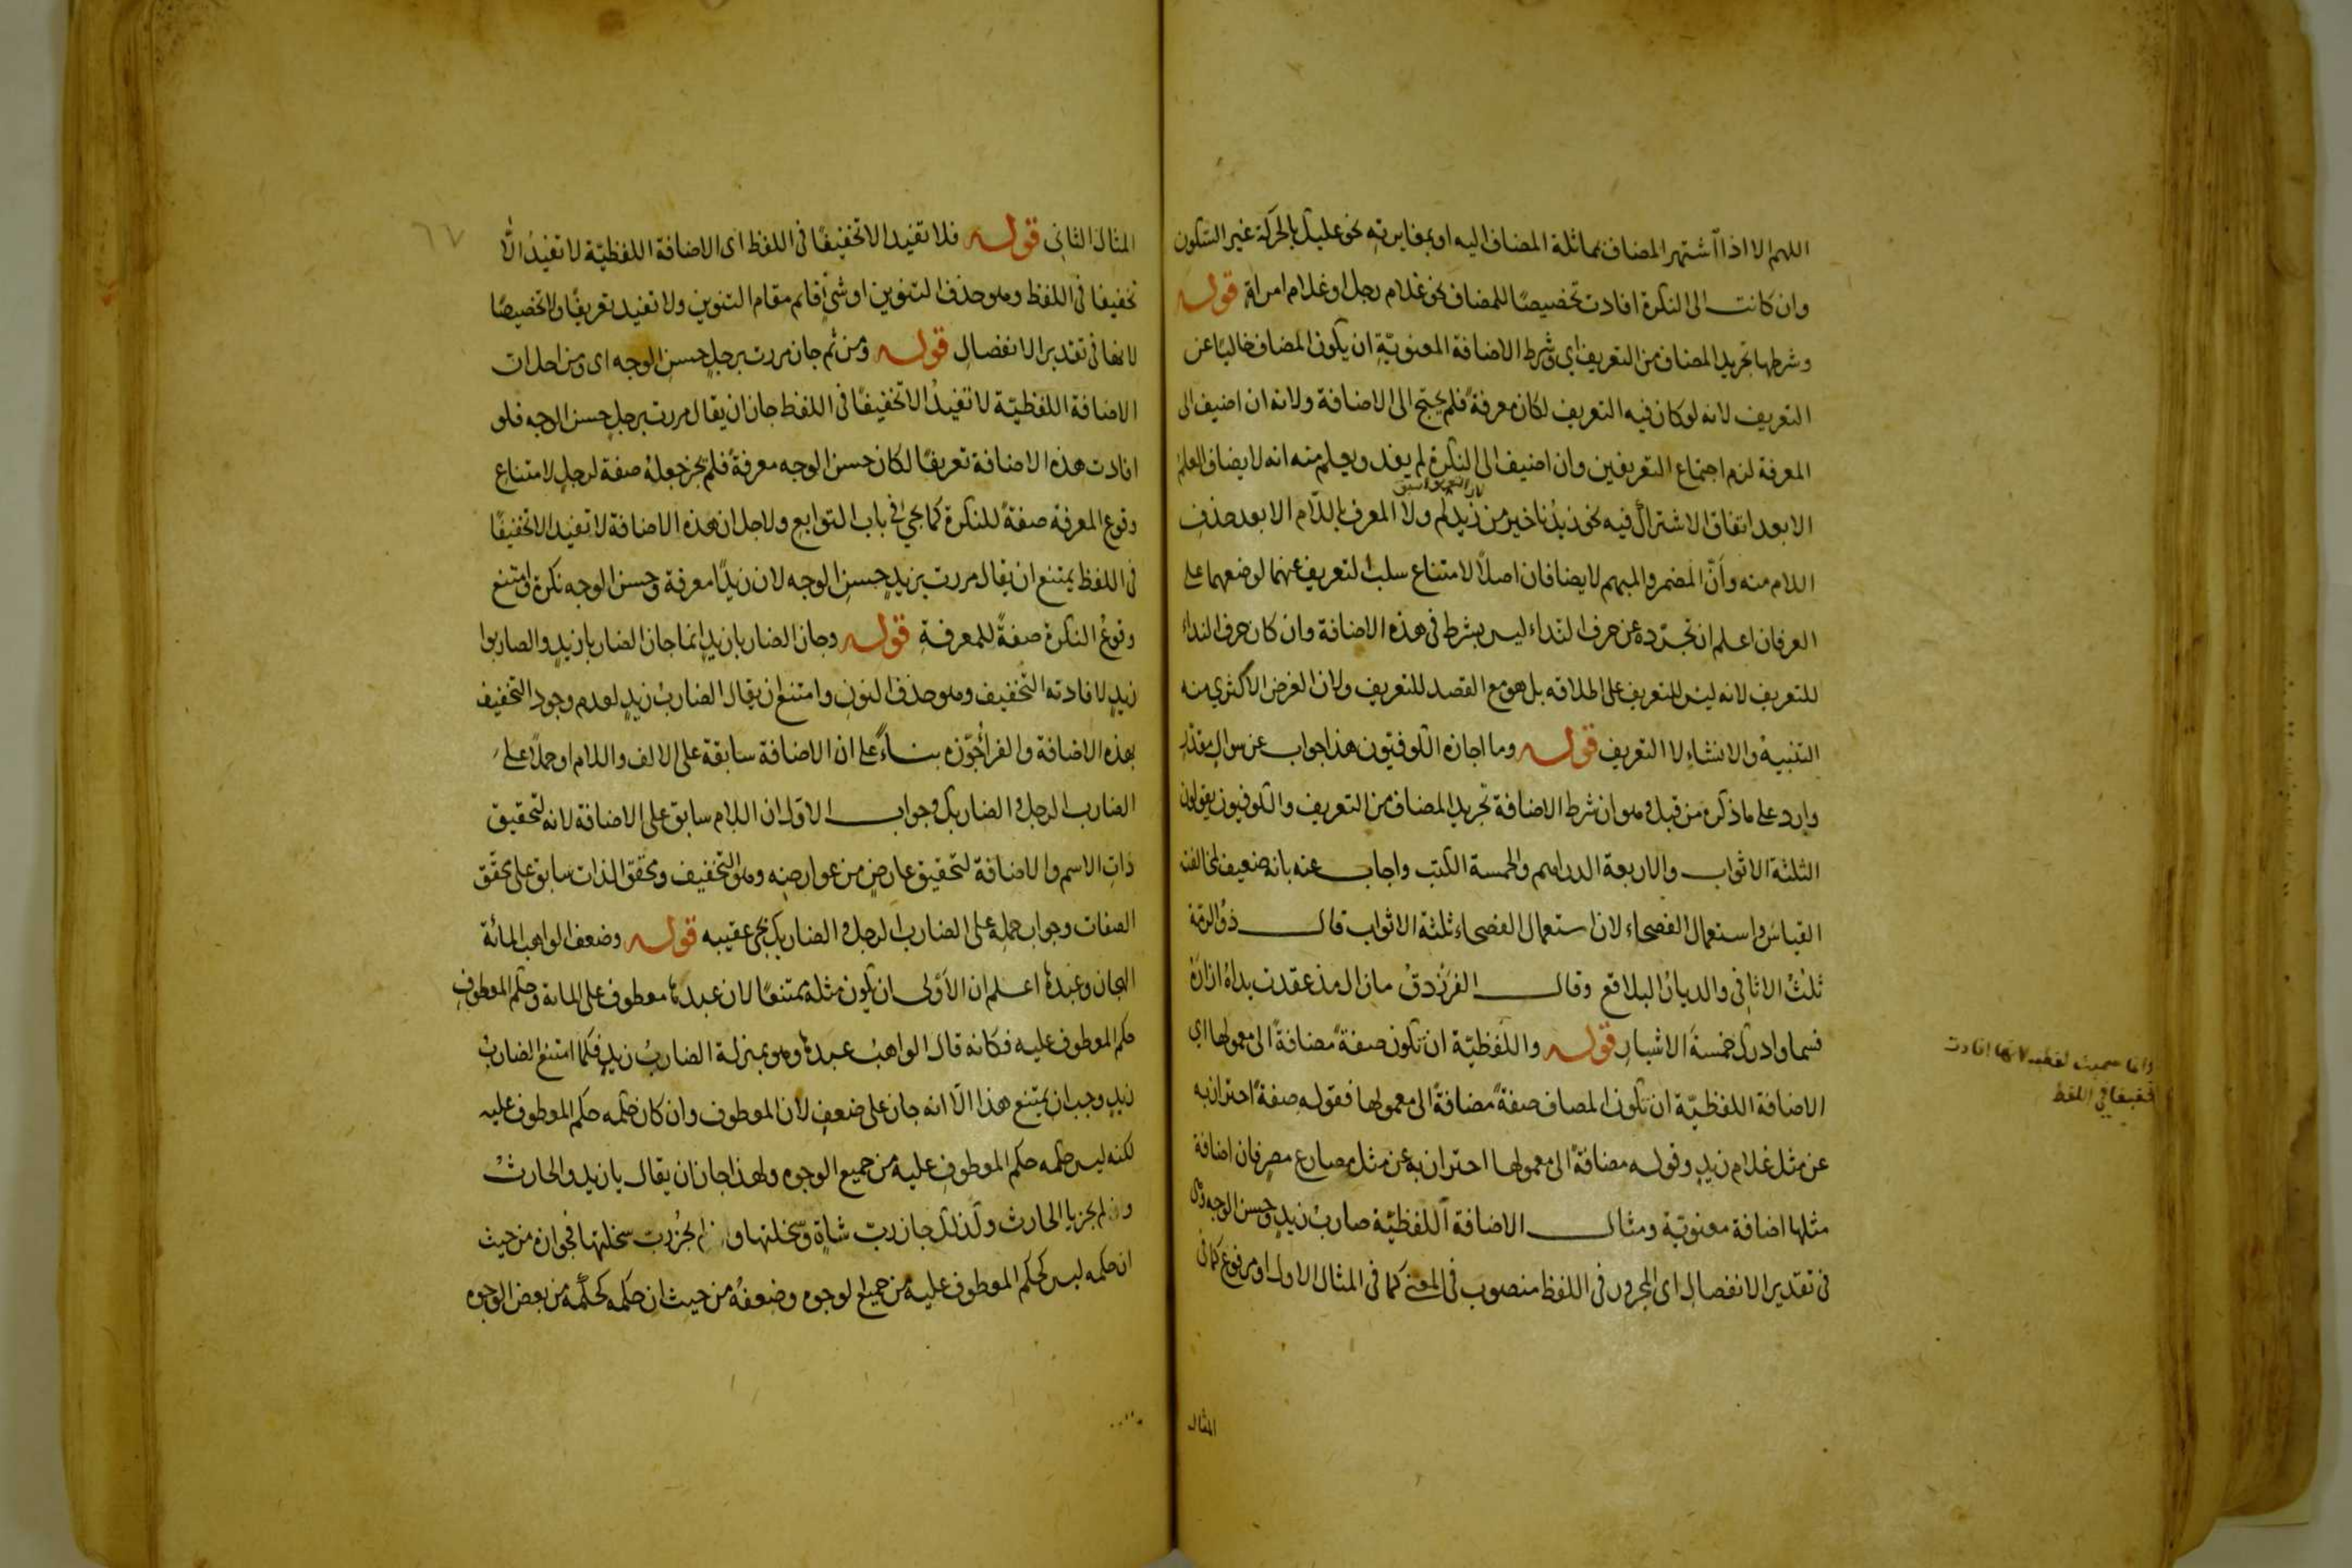 اللهم الا اذا اشتهر المضاف بمماثلة المضاف اليه او بمغايرته نحو عليك بالحركة غير السكون
وان كانت الى النكرة افادت تخصيصًا للمضاف نحو غلام رجل او غلام امراة قوله
وشرطها تجريد المضاف من التعريف اى وشرط الاضافة المعنويّة ان يكون المضاف خاليًا عن
التعريف لانه لو كان فيه التعريف لكان معرفةً فلم يحتج الى الاضافة ولانه ان اضيف الى
المعرفة لزم اجتماع التعريفين وان اضيف الى النكرة لم يفد ويعلم منه انه لا يضاف العلم
الا بعد اتفاق الاشتراك فيه نحو زيدنا خير من زيدكم ولا المعرف باللام الا بعد حذف
اللام منه وأنّ المضمر والمبهم لا يضافان اصلاً لامتناع سلب التعريف عنهما لوضعهما على
العرفان اعلم ان تجرّده عن حرف النداء ليس بشرط فى هذه الاضافة وان كان حرف النداء
للتعريف لانه ليس للتعريف على اطلاقه بل هو مع القصد للتعريف ولان الغرض الاكثرى منه
التنبيه والانشاء لا التعريف قوله وما اجازه الكوفيّون هذا جواب عن سوال مقدّر
وارد على ما ذكره من قبل وهو ان شرط الاضافة تجريد المضاف من التعريف والكوفيون يقولون
الثلثة الاثواب والاربعة الدراهم والخمسة الكتب واجاب عنه بانه ضعيف لمخالفته
القياس واستعمال الفصحاء لان استعمال الفصحاء ثلثة الاثواب قال ذو الرمّة
ثلثُ الاثافى والديارُ البلاقع وقال الفَرَزْدقُ ما زال مذ عقدت يداهُ ازارَهُ
فسما وادرك خمسةَ الاشبار قوله واللفظيّة ان تكون صفةً مضافةً الى معمولها اى
الاضافة اللفظيّة ان تكون المضاف صفةً مضافةً الى معمولها فقوله صفةً احترازٌ به
عن مثل غلام زيدٍ وقوله مضافةً الى معمولها احتراز به عن مثل مصارع مصر فان اضافة
مثلها اضافة معنويّة ومثال الاضافة اللفظيّة ضاربُ زيدٍ وحسن الوجه وهى
فى تقدير الانفصال اى المجرور فى اللفظ منصوب فى المعنى كما فى المثال الاول او مرفوع كما فى
المثال
وانما سميت لفظيه لانها افادت
تخفيفا فى اللفظ
٦٧
المثال الثانى قوله فلا تفيد الا تخفيفًا فى اللفظ اى الاضافة اللفظيّة لا تفيدُ الّا
تخفيفا فى اللفظ وهو حذف التنوين او شىءٍ قائم مقام التنوين ولا تفيد تعريفًا ولا تخصيصًا
لانها فى تقدير الانفصال قوله ومن ثم جاز مررت برجلٍ حسن الوجه اى ومن اجل ان
الاضافة اللفظيّة لا تفيدُ الا تخفيفًا فى اللفظ جاز ان يقال مررت برجلٍ حسن الوجه فلو
افادت هذه الاضافة تعريفًا لكان حسن الوجه معرفةً فلم يجز جعلهُ صفة لرجلٍ لامتناع
وقوع المعرفة صفةً للنكرة كما يجىُ فى باب التوابع ولاجل ان هذه الاضافة لا تفيد الا تخفيفًا
فى اللفظ يمتنع ان يقال مررت بزيدٍ حسنِ الوجه لان زيدًا معرفة وحسن الوجه نكرة وامتنع
وقوعُ النكرة صفةً للمعرفة قوله وجاز الضاربا زيدٍ انما جاز الضاربا زيدٍ والضاربوا
زيدٍ لافادته التخفيف وهو حذف النون وامتنع ان يقال الضاربُ زيدٍ لعدم وجود التخفيف
بهذه الاضافة والفرا جوّزه بناءً على ان الاضافة سابقة على الالف واللام او حملاً على
الضارب الرجل والضاربك وجواب الاول ان اللام سابق على الاضافة لانه لتحقيق
ذاتِ الاسم والاضافة لتحقيق عارضٍ من عوارضه وهو التخفيف وتحقق الذات سابق على تحقّق
الصفات وجواب حمله على الضارب الرجل والضاربك يجىُ عقيبه قوله وضعف الواهب المائة
الهجان وعبدِها اعلم ان الأولى ان يكون مثله ممتنعًا لان عبدها معطوف على المائة وحكم المعطوف
حكم المعطوف عليه فكانه قال الواهبُ عبدِها وهو بمنزلة الضاربُ زيدٍ فكما امتنع الضاربُ
زيدٍ وجب ان يمتنع هذا الّا انه جاز على ضعفٍ لان المعطوف وان كان حكمه حكم المعطوف عليه
لكنه ليس حكمه حكم المعطوف عليه من جميع الوجوه ولهذا جاز ان يقال يا زيد والحارثُ
ولم يجز يا الحارث ولذلك جاز ربّ شاةٍ وسخلتها ولم يجز ربّ سخلتها فجوازه من حيث
ان حكمه ليس كحكم المعطوف عليه من جميع الوجوه وضعفهُ من حيث ان حكمه كحكمه من بعض الوجوه